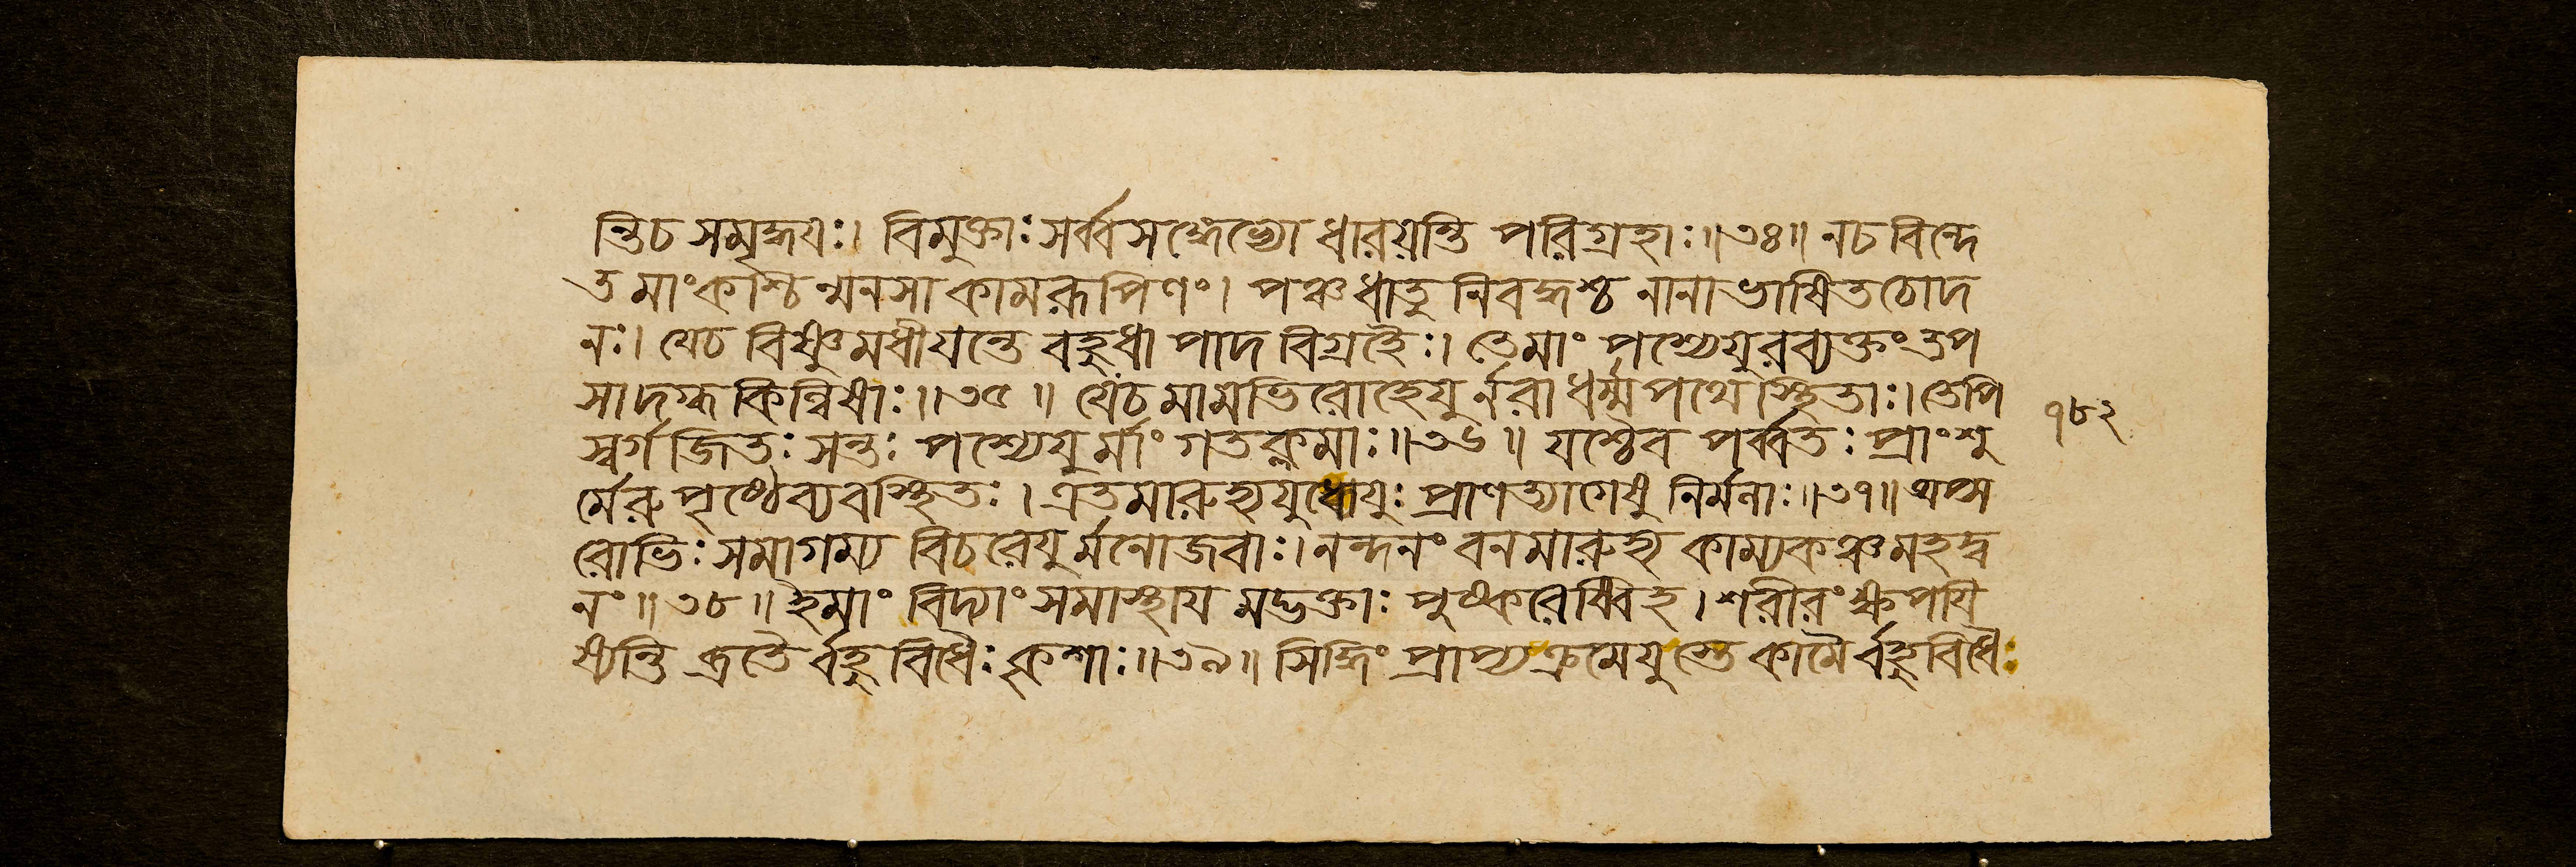 ন্তিচ সমৃদ্ধয়ঃ। বিমুক্তাঃ সর্ব্বসঙ্গেভ্যো ধারয়ন্তি পরিগ্রহাঃ॥৩৪॥ নচ বিন্দে
ত মাংকশ্চিন্মনসা কামরূপিণং। পঞ্চধাতু নিবদ্ধশ্চ নানাভাষিতচোদ
নঃ। যেচ বিষ্ণুমধীয়ন্তে বহুধা পাদ বিগ্রহৈঃ। তেমাং পশ্যেয়ুরব্যক্তং তপ
সাদগ্ধ কিল্বিষাঃ॥৩৫॥ যেচ মামভিরোহেয়ুর্নরা ধর্ম্মপথেস্থিতাঃ। তেপি
স্বর্গজিতঃ সন্তঃ পশ্যেয়ুর্মাং গতক্লমাঃ॥৩৬॥ যশ্চৈব পর্ব্বতঃ প্রাংশু ১৮২
র্মেরু পৃষ্ঠেব্যবস্থিতঃ। এতমারুহ্যযুধ্যেয়ুঃ প্রাণত্যাগেষু নির্মনাঃ॥৩৭॥ অপ্স
রোভিঃ সমাগম্য বিচরেয়ুর্মনোজবাঃ। নন্দনং বনমারুহ্য কাম্যকঞ্চমহদ্ব
নং॥৩৮॥ ইমাং বিদ্যাং সমাস্থায় মদ্ভক্তাঃ পুষ্করেষ্বিহ। শরীরং ক্ষপয়ি
ষ্যন্তি ব্রতৈর্বহু বিধৈঃ কৃশাঃ॥৩৯॥ সিদ্ধিং প্রাপ্য ক্রমেয়ুস্তে কামৈর্বহুবিধৈঃ